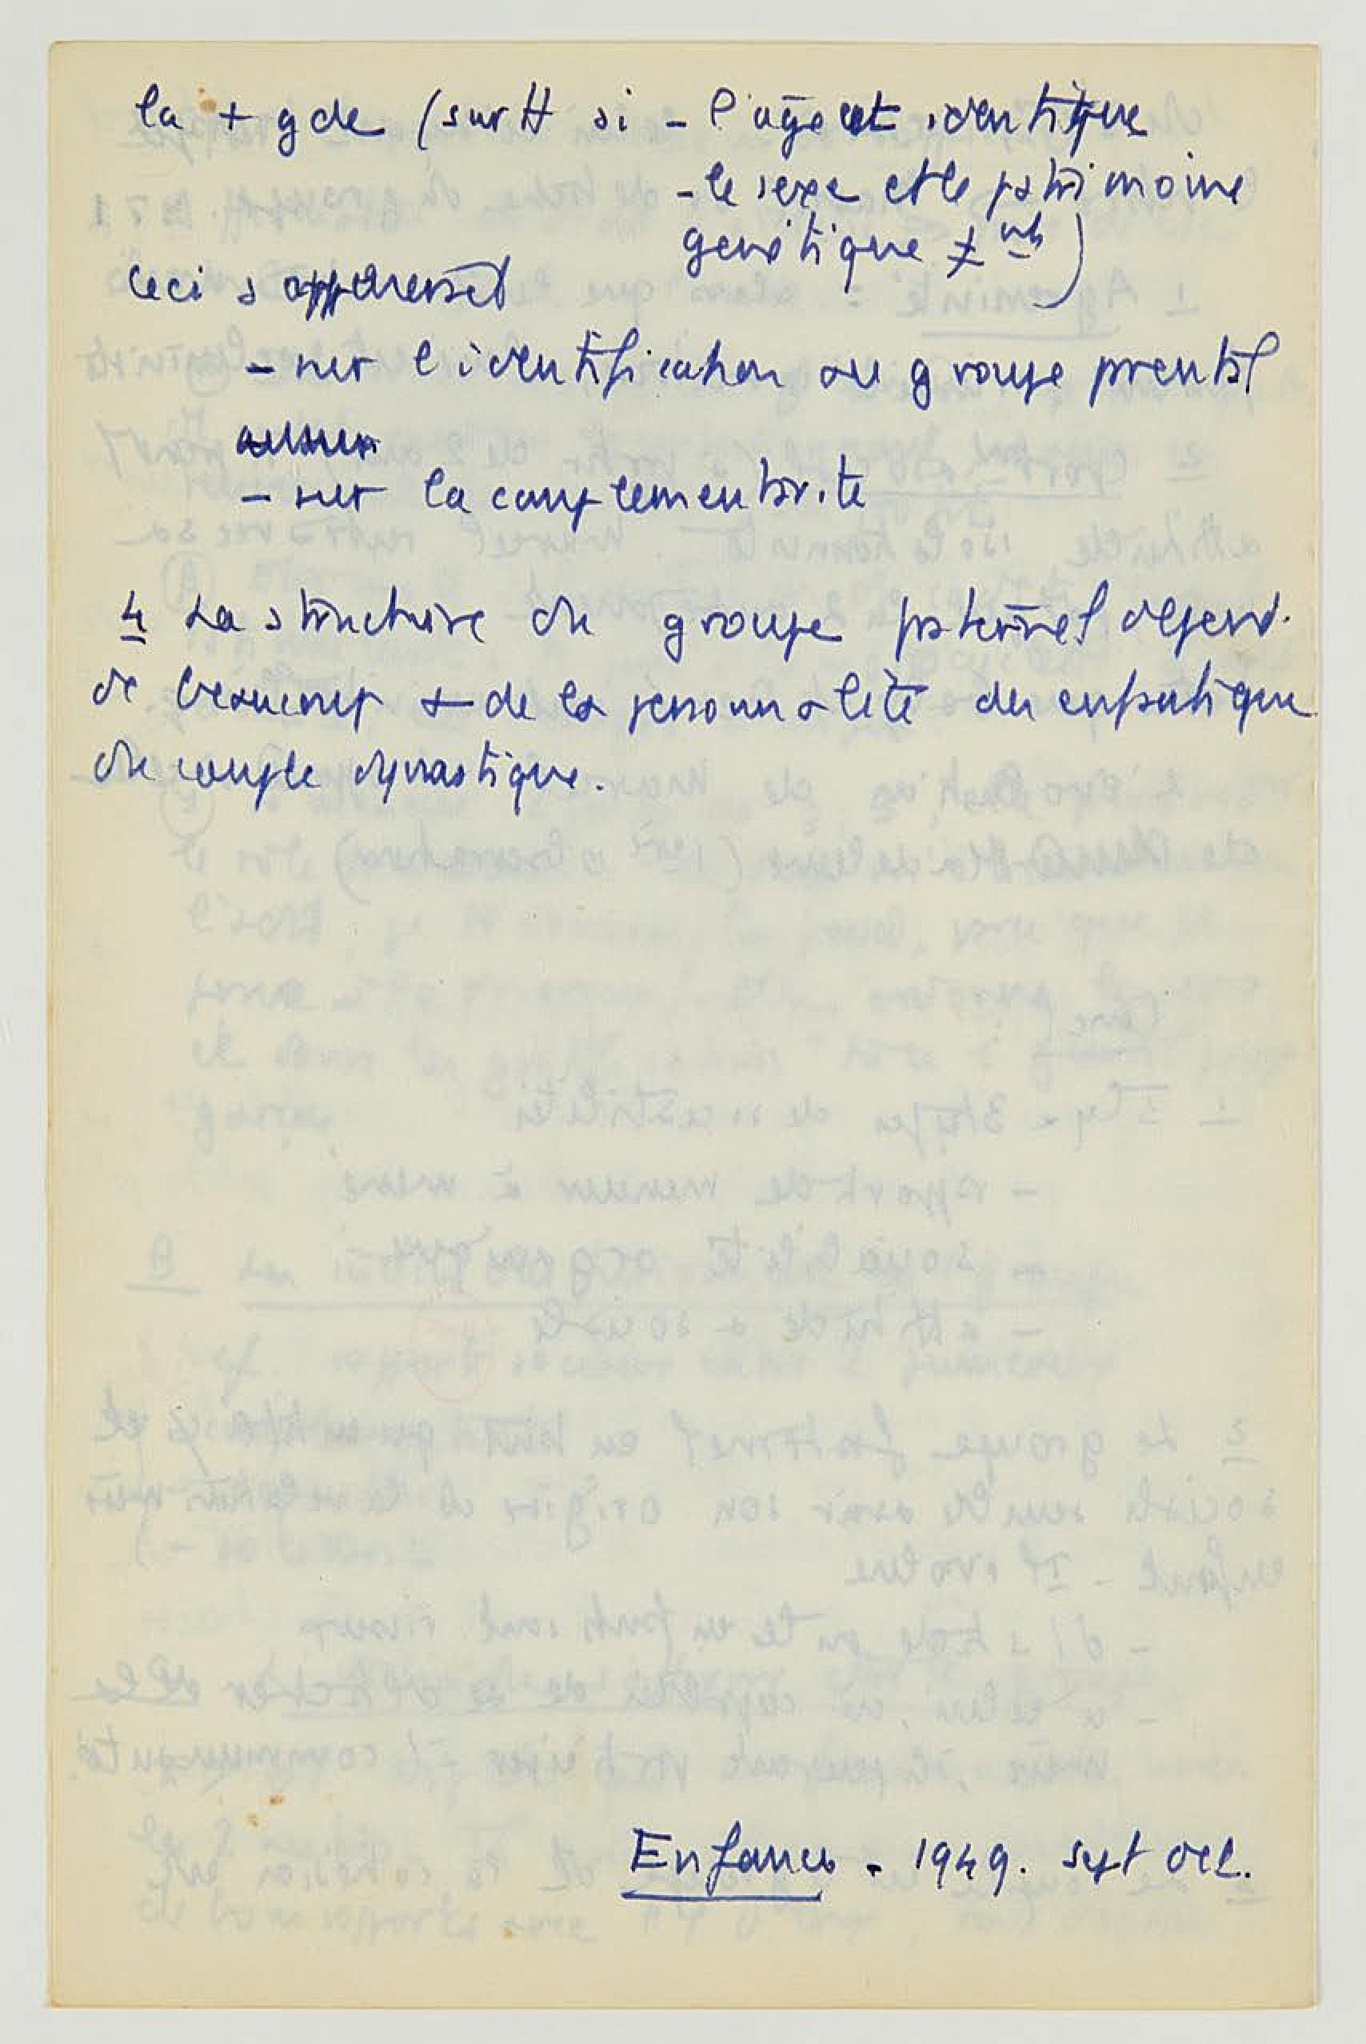 la + gde (surtt si - l'age est identique
- le sexe et le patrimoine
génétique ≠ nts)
Ceci s'apparent
- sur l'identification au groupe parental
- sur la complementarite
4 La structure du groupe paternel depend.
de beaucoup + de la personnalité des enfants que
du couple dynastique.
Enfance - 1949. Sept Oct.